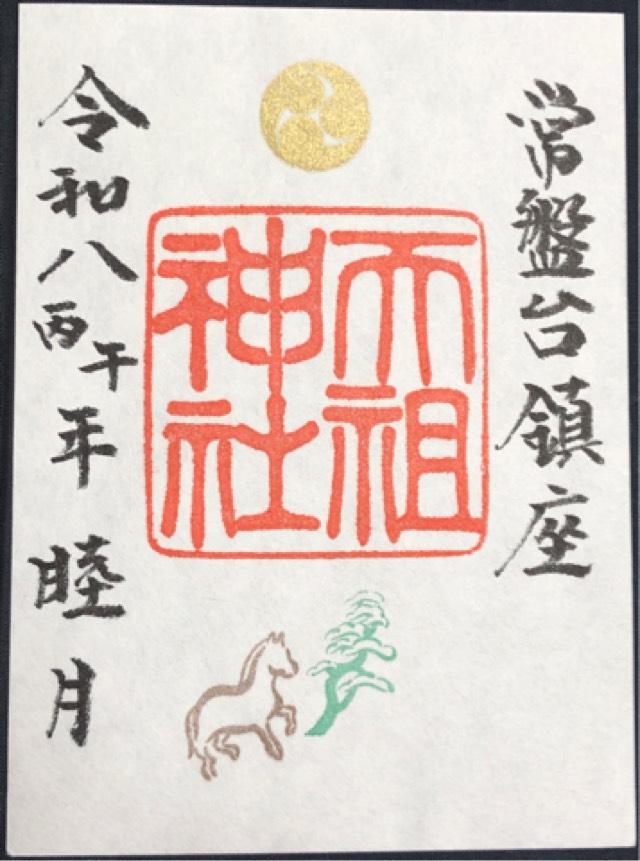 常盤台鎮座
天祖
神社
令和八丙午年 睦月